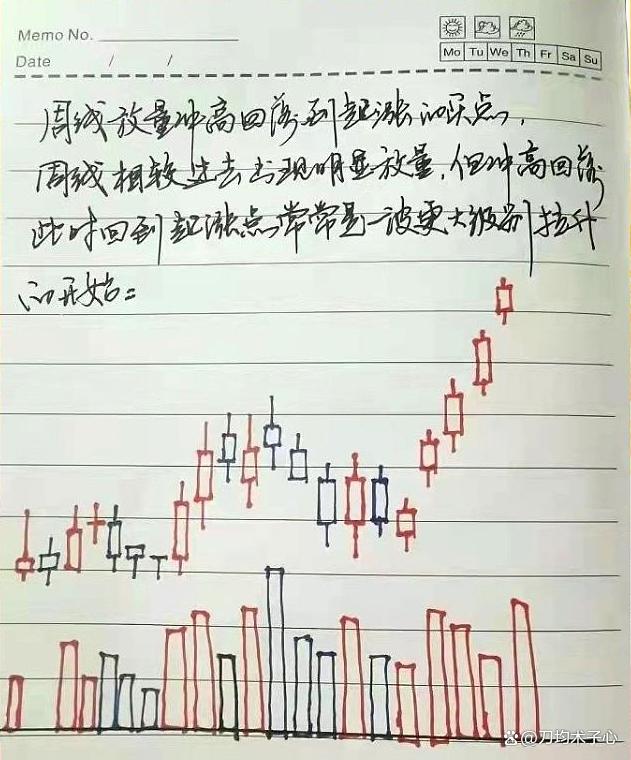 Memo No.
Date / /
Mo Tu We Th Fr Sa Su
周线放量冲高回落到起涨的买点,
周线相较过去出现明显放量,但冲高回落
此时回到起涨点常常是一波更大级别拉升
的开始:
@刀均木子心